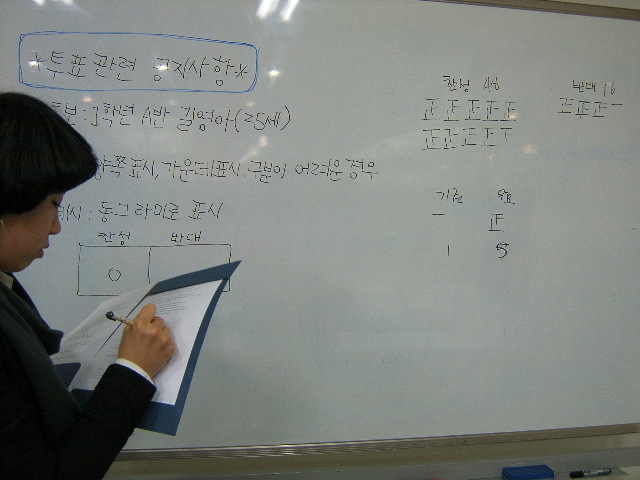 *투표 관련 공지사항*
후보 : 1학년 A반 길영아 (25세)
양쪽표시, 가운데표시, 구분이 어려운 경우
표시 : 동그라미로 표시
찬성 반대
O
찬성 48
正 正 正 正 正
正 正 正 正
반대 16
正 正 正 一
기권 무효
一 正
1 5